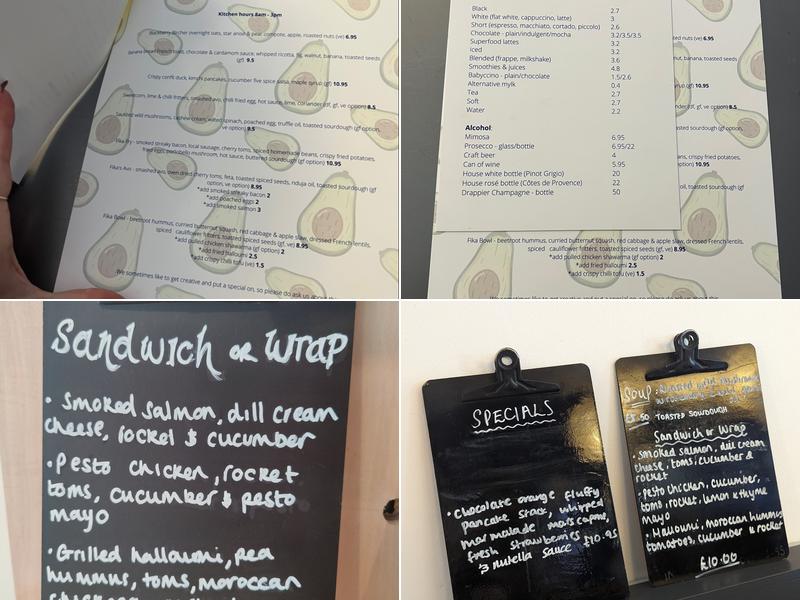 Kitchen hours 8am - 3pm
Blackberry Bircher overnight oats, star anise & pear compote, apple, roasted nuts (ve) 6.95
Banana bread French toast, chocolate & cardamom sauce, whipped ricotta, fig, walnut, banana, toasted seeds
(gf) 9.5
Crispy confit duck, kimchi pancakes, cucumber five spice salsa, maple syrup (gf) 10.95
Sweetcorn, lime & chilli fritters, smashed avo, chilli fried egg, hot sauce, lime, coriander (df, gf, ve option) 8.5
Sautéed wild mushrooms, cashew cream, wilted spinach, poached egg, truffle oil, toasted sourdough (gf option,
ve option) 9.5
Fika fry - smoked streaky bacon, local sausage, cherry toms, spiced homemade beans, crispy fried potatoes,
fried eggs, portobello mushroom, hot sauce, buttered sourdough (gf option) 10.95
Fika's Avo - smashed avo, oven dried cherry toms, feta, toasted spiced seeds, nduja oil, toasted sourdough (gf
option, ve option) 8.95
*add smoked streaky bacon 2
*add poached eggs 2
*add smoked salmon 3
Fika Bowl - beetroot hummus, curried butternut squash, red cabbage & apple slaw, dressed French lentils,
spiced cauliflower fritters, toasted spiced seeds (gf, ve) 8.95
*add pulled chicken shawarma (gf option) 2
*add fried halloumi 2.5
*add crispy chilli tofu (ve) 1.5
We sometimes like to get creative and put a special on, so please do ask us about the
Black 2.7
White (flat white, cappuccino, latte) 3
Short (espresso, macchiato, cortado, piccolo) 2.6
Chocolate - plain/indulgent/mocha 3.2/3.5/3.5
Superfood lattes 3.2
Iced 3.2
Blended (frappe, milkshake) 3.6
Smoothies & juices 4.8
Babyccino - plain/chocolate 1.5/2.6
Alternative mylk 0.4
Tea 2.7
Soft 2.7
Water 2.2
Alcohol:
Mimosa 6.95
Prosecco - glass/bottle 6.95/22
Craft beer 4
Can of wine 5.95
House white bottle (Pinot Grigio) 20
House rosé bottle (Côtes de Provence) 22
Drappier Champagne - bottle 50
nuts (ve) 6.95
toasted seeds
10.95
(df, gf, ve option) 8.5
sourdough (gf option,
fried potatoes,
10.95
sourdough (gf
Fika Bowl - beetroot hummus, curried butternut squash, red cabbage & apple slaw, dressed French lentils,
spiced cauliflower fritters, toasted spiced seeds (gf, ve) 8.95
*add pulled chicken shawarma (gf option) 2
*add fried halloumi 2.5
*add crispy chilli tofu (ve) 1.5
We sometimes like to get creative and put a special on, so please do ask us about this
Sandwich or Wrap
• Smoked salmon, dill cream
cheese, rocket & cucumber
• Pesto chicken, rocket
toms, cucumber & pesto
mayo
• Grilled halloumi, pea
hummus, toms, moroccan
SPECIALS
• Chocolate orange fluffy
pancake stack, whipped
marmalade marscapone,
fresh strawberries
& nutella sauce £10.95
Soup: Roasted wild mushroom
£5.50 TOASTED SOURDOUGH
Sandwich or Wrap
• smoked salmon, dill cream
cheese, toms, cucumber &
rocket
• pesto chicken, cucumber,
toms, rocket, lemon & thyme
mayo
• Halloumi, moroccan hummus
tomatoes, cucumber & rocket
£10.00